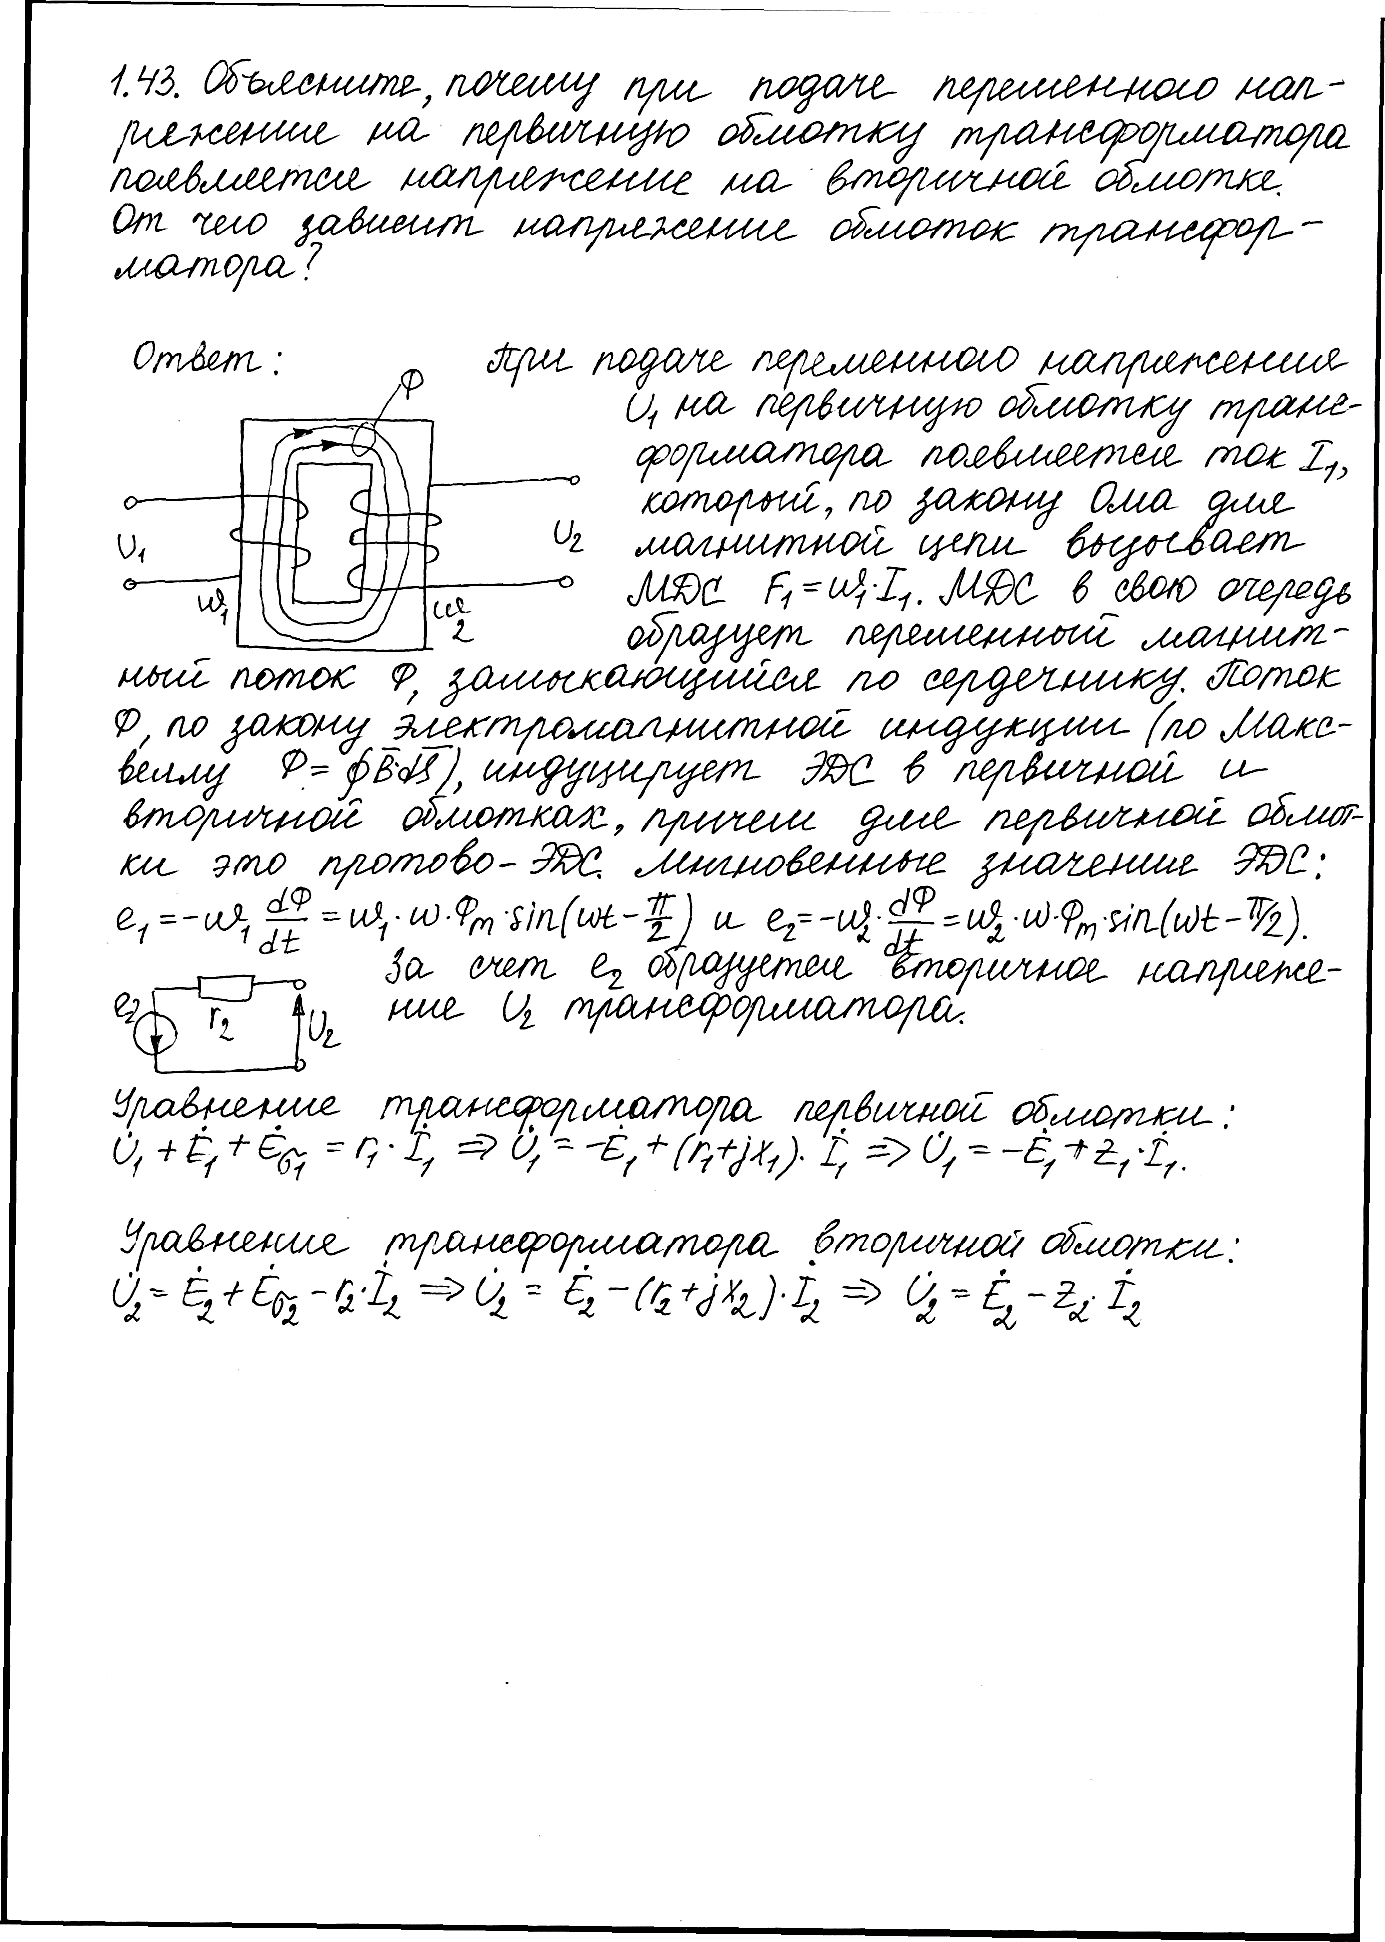 1.43. Объясните, почему при подаче переменного нап-
ряжение на первичную обмотку трансформатора
появляется напряжение на вторичной обмотке.
От чего зависит напряжение обмоток трансфор-
матора?
Ответ:
Φ
U₁
U₂
w₁
w₂
При подаче переменного напряжения
U₁ на первичную обмотку транс-
форматора появляется ток I₁,
который, по закону Ома для
магнитной цепи вызывает
МДС F₁ = w₁·I₁. МДС в свою очередь
образует переменный магнит-
ный поток Φ, замыкающийся по сердечнику. Поток
Φ, по закону электромагнитной индукции (по Макс-
веллу Φ = ∮B̅·dS̅), индуцирует ЭДС в первичной и
вторичной обмотках, причем для первичной обмот-
ки это протово-ЭДС. Мгновенные значение ЭДС:
e₁ = -w₁ dΦ/dt = w₁·w·Φm·sin(wt - π/2) и e₂ = -w₂·dΦ/dt = w₂·w·Φm·sin(wt - π/2).
За счет e₂ образуется вторичное напряже-
ние U₂ трансформатора.
e₂
r₂
U₂
Уравнение трансформатора первичной обмотки:
U̇₁ + Ė₁ + Ėσ₁ = r₁·İ₁ => U̇₁ = -Ė₁ + (r₁+jx₁)·İ₁ => U̇₁ = -Ė₁ + z₁·İ₁.
Уравнение трансформатора вторичной обмотки:
U̇₂ = Ė₂ + Ėσ₂ - r₂·İ₂ => U̇₂ = Ė₂ - (r₂+jx₂)·İ₂ => U̇₂ = Ė₂ - z₂·İ₂